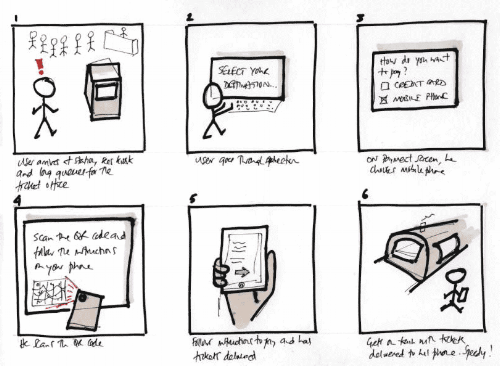 1
!
User arrives at station, sees kiosk
and long queues for the
ticket office
2
SELECT YOUR
DESTINATION...
User goes through
3
How do you want
to pay?
CREDIT CARD
MOBILE PHONE
On payment screen, he
chooses mobile phone
4
Scan the QR code and
follow the instructions
on your phone
He scans the QR code
5
Follows instructions to pay and has
tickets delivered
6
Gets on train with tickets
delivered to his phone... Speedy!